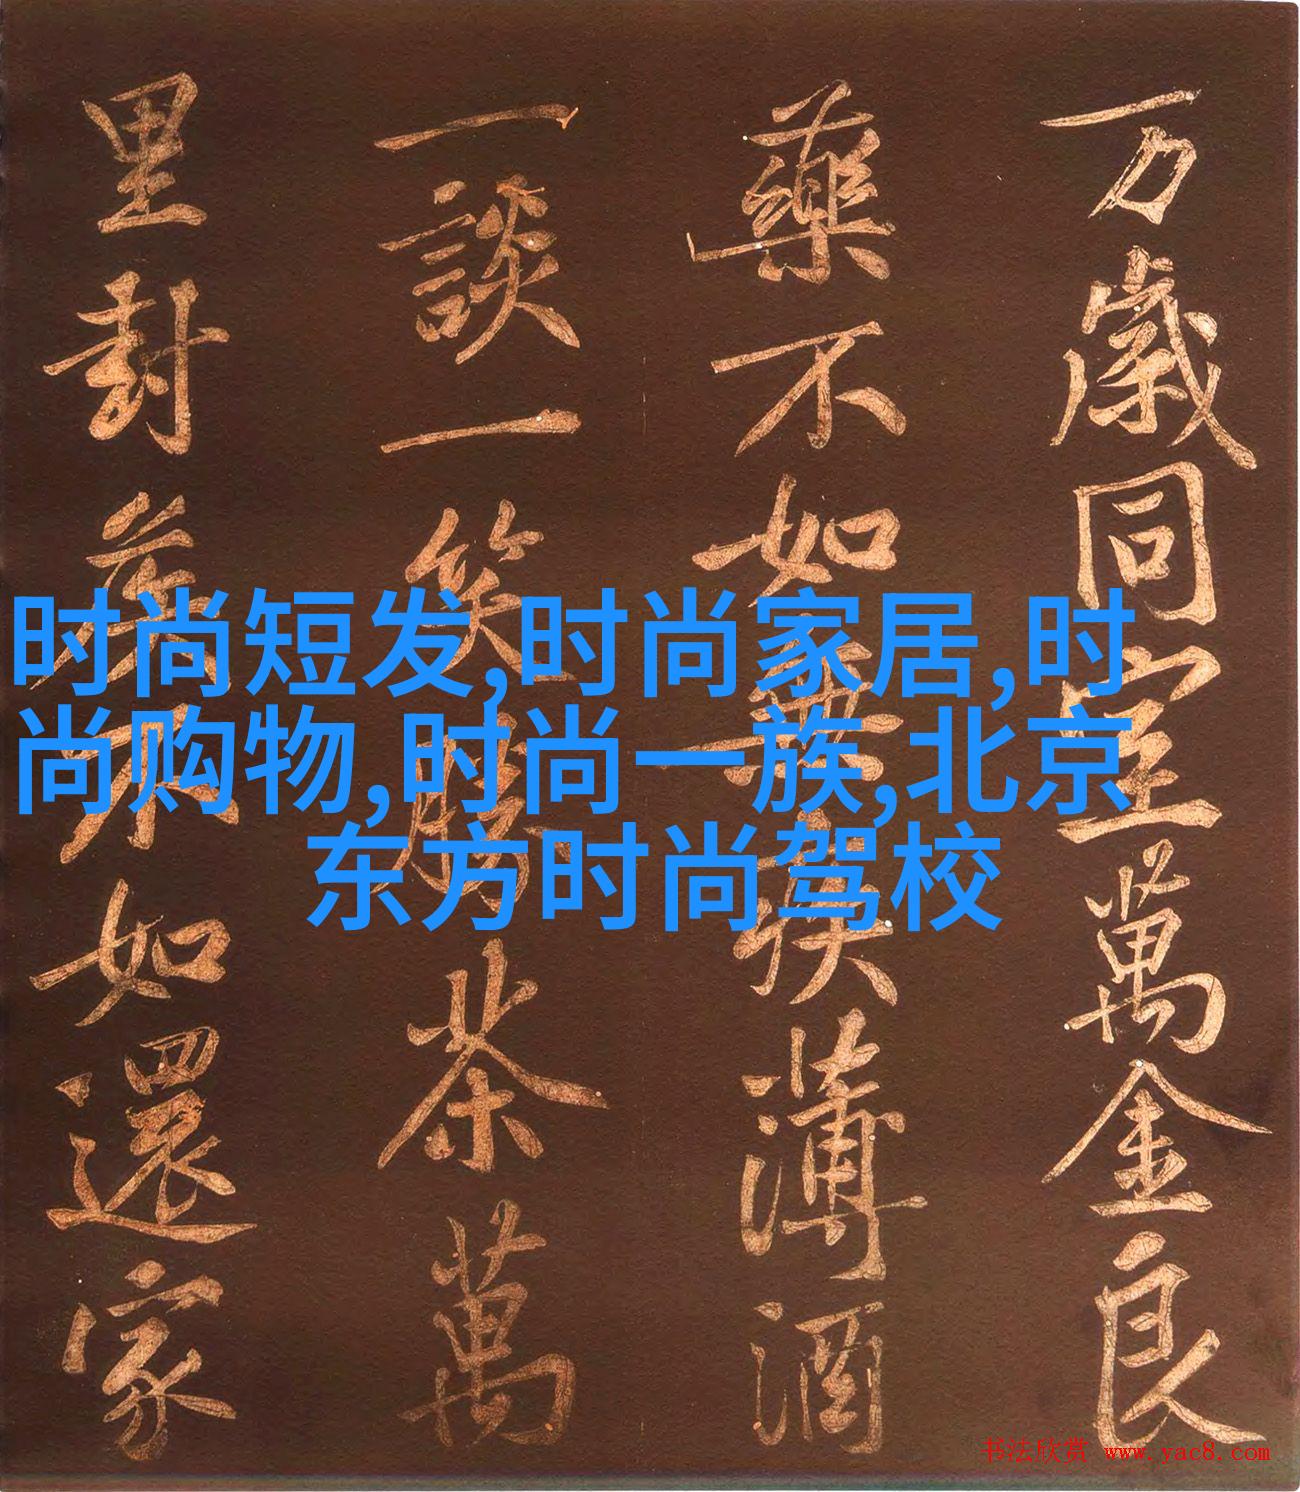 万歲同室萬金良
藥不如無疾薄酒
一談一笑勝茶萬
里封侯不如還家
时尚短发,时尚家居,时
尚购物,时尚一族,北京
东方时尚驾校
书法欣赏 www.yac8.com